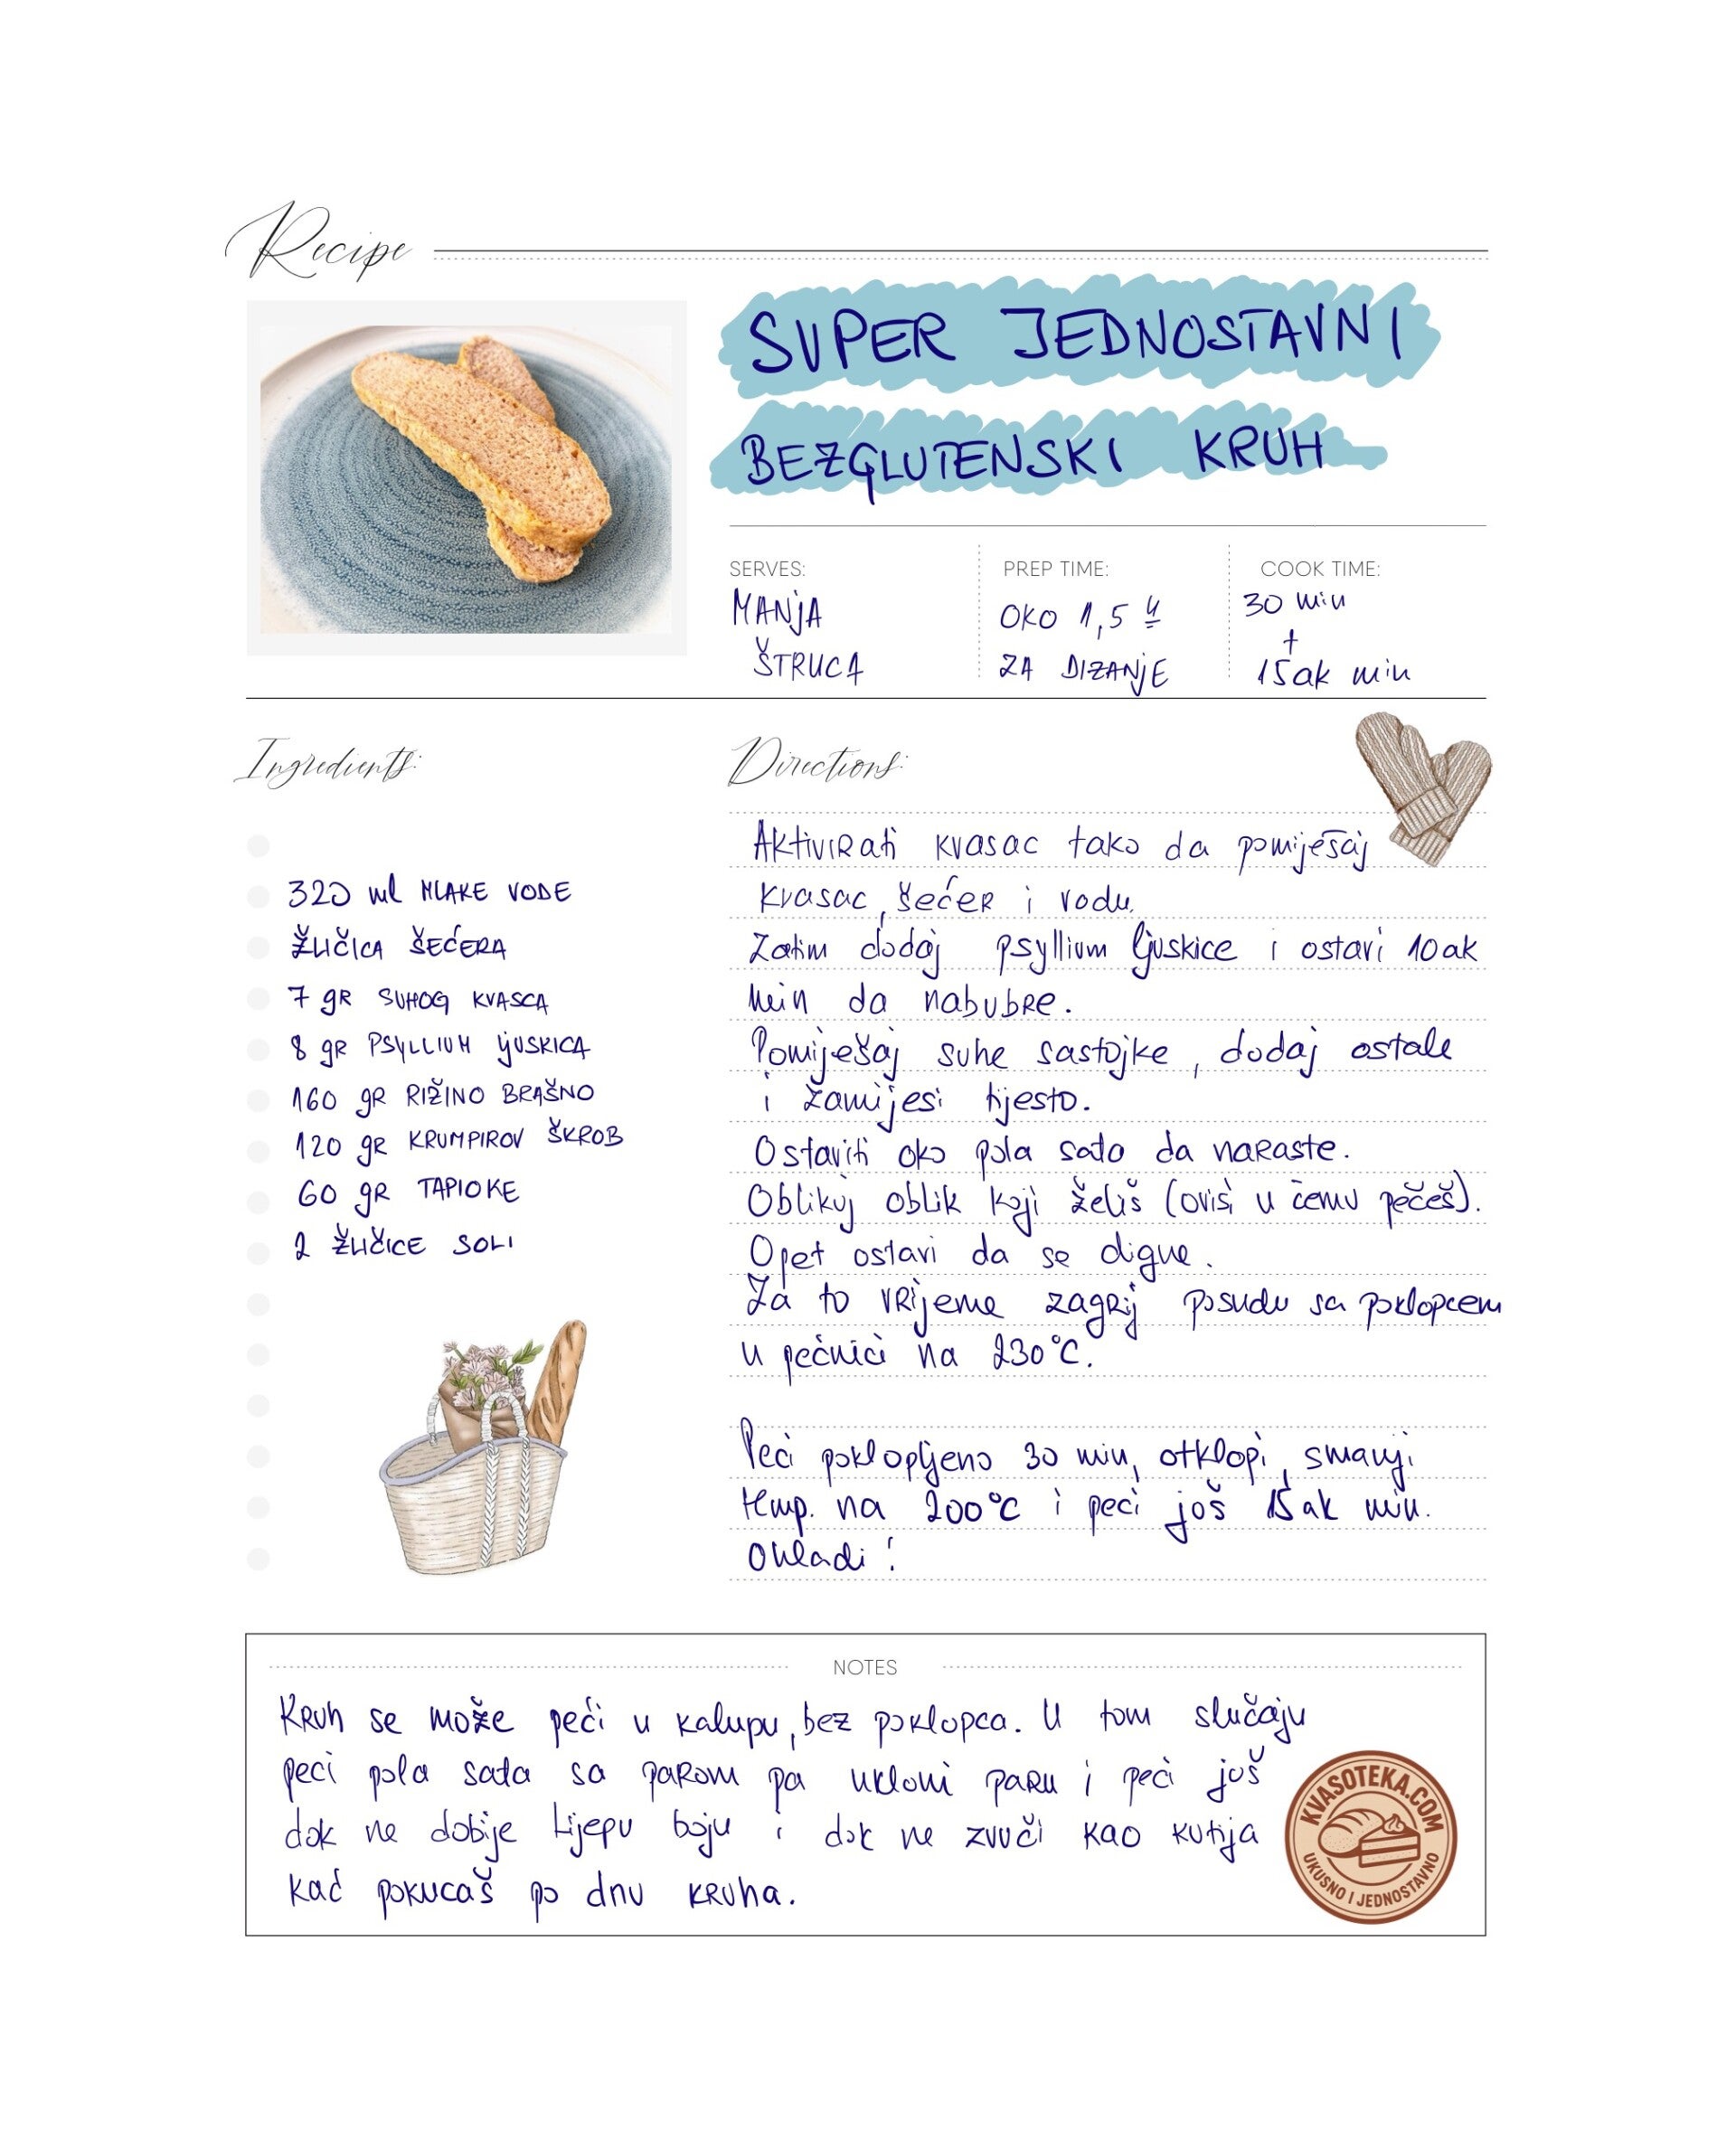 Recipe
SUPER JEDNOSTAVNI
BEZGLUTENSKI KRUH
SERVES:
MANJA
ŠTRUCA
PREP TIME:
OKO 1,5 h
ZA DIZANJE
COOK TIME:
30 min
+
15ak min
Ingredients:
320 ml MLAKE VODE
ŽLIČICA ŠEĆERA
7 gR SUHOG KVASCA
8 gR PSYLLIUM LJUSKICA
160 gR RIŽINO BRAŠNO
120 gR KRUMPIROV ŠKROB
60 gR TAPIOKE
2 ŽLIČICE SOLI
Directions:
Aktivirati kvasac tako da pomiješaj
kvasac, šećer i vodu.
Zatim dodaj psyllium ljuskice i ostavi 10ak
min da nabubre.
Pomiješaj suhe sastojke, dodaj ostale
i zamijesi tijesto.
Ostaviti oko pola sata da naraste.
Oblikuj oblik koji želiš (ovisi u čemu pečeš).
Opet ostavi da se digne.
Za to vrijeme zagrij posudu sa poklopcem
u pećnici na 230°C.
Peci poklopljeno 30 min, otklopi, smanji
temp. na 200°C i peci još 15ak min.
Ohladi!
NOTES
Kruh se može peći u kalupu, bez poklopca. U tom slučaju
peci pola sata sa parom pa ukloni paru i peci još
dok ne dobije lijepu boju i dok ne zvuči kao kutija
kad pokucaš po dnu kruha.
KVASOTEKA.COM
UKUSNO I JEDNOSTAVNO